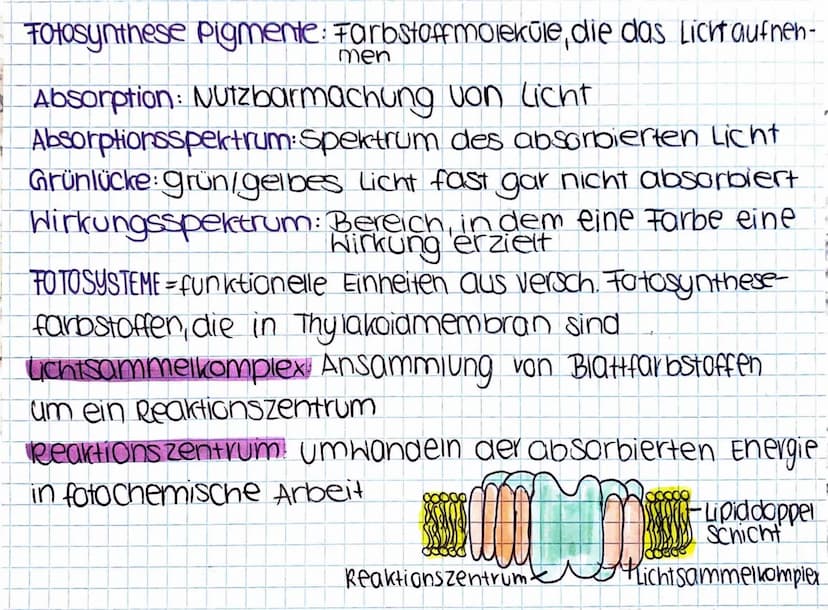 Fotosynthese Pigmente: Farbstoffmoleküle, die das Licht aufneh-
men
Absorption: Nutzbarmachung von Licht
Absorptionsspektrum: Spektrum des absorbierten Licht
Grünlücke: grün/gelbes Licht fast gar nicht absorbiert
Wirkungsspektrum: Bereich, in dem eine Farbe eine
Wirkung erzielt
FOTOSYSTEME = funktionelle Einheiten aus versch. Fotosynthese-
farbstoffen, die in Thylakoidmembran sind
Lichtsammelkomplex: Ansammlung von Blattfarbstoffen
um ein Reaktionszentrum
Reaktionszentrum: umwandeln der absorbierten Energie
in fotochemische Arbeit
Lipiddoppel
schicht
Reaktionszentrum
Lichtsammelkomplex